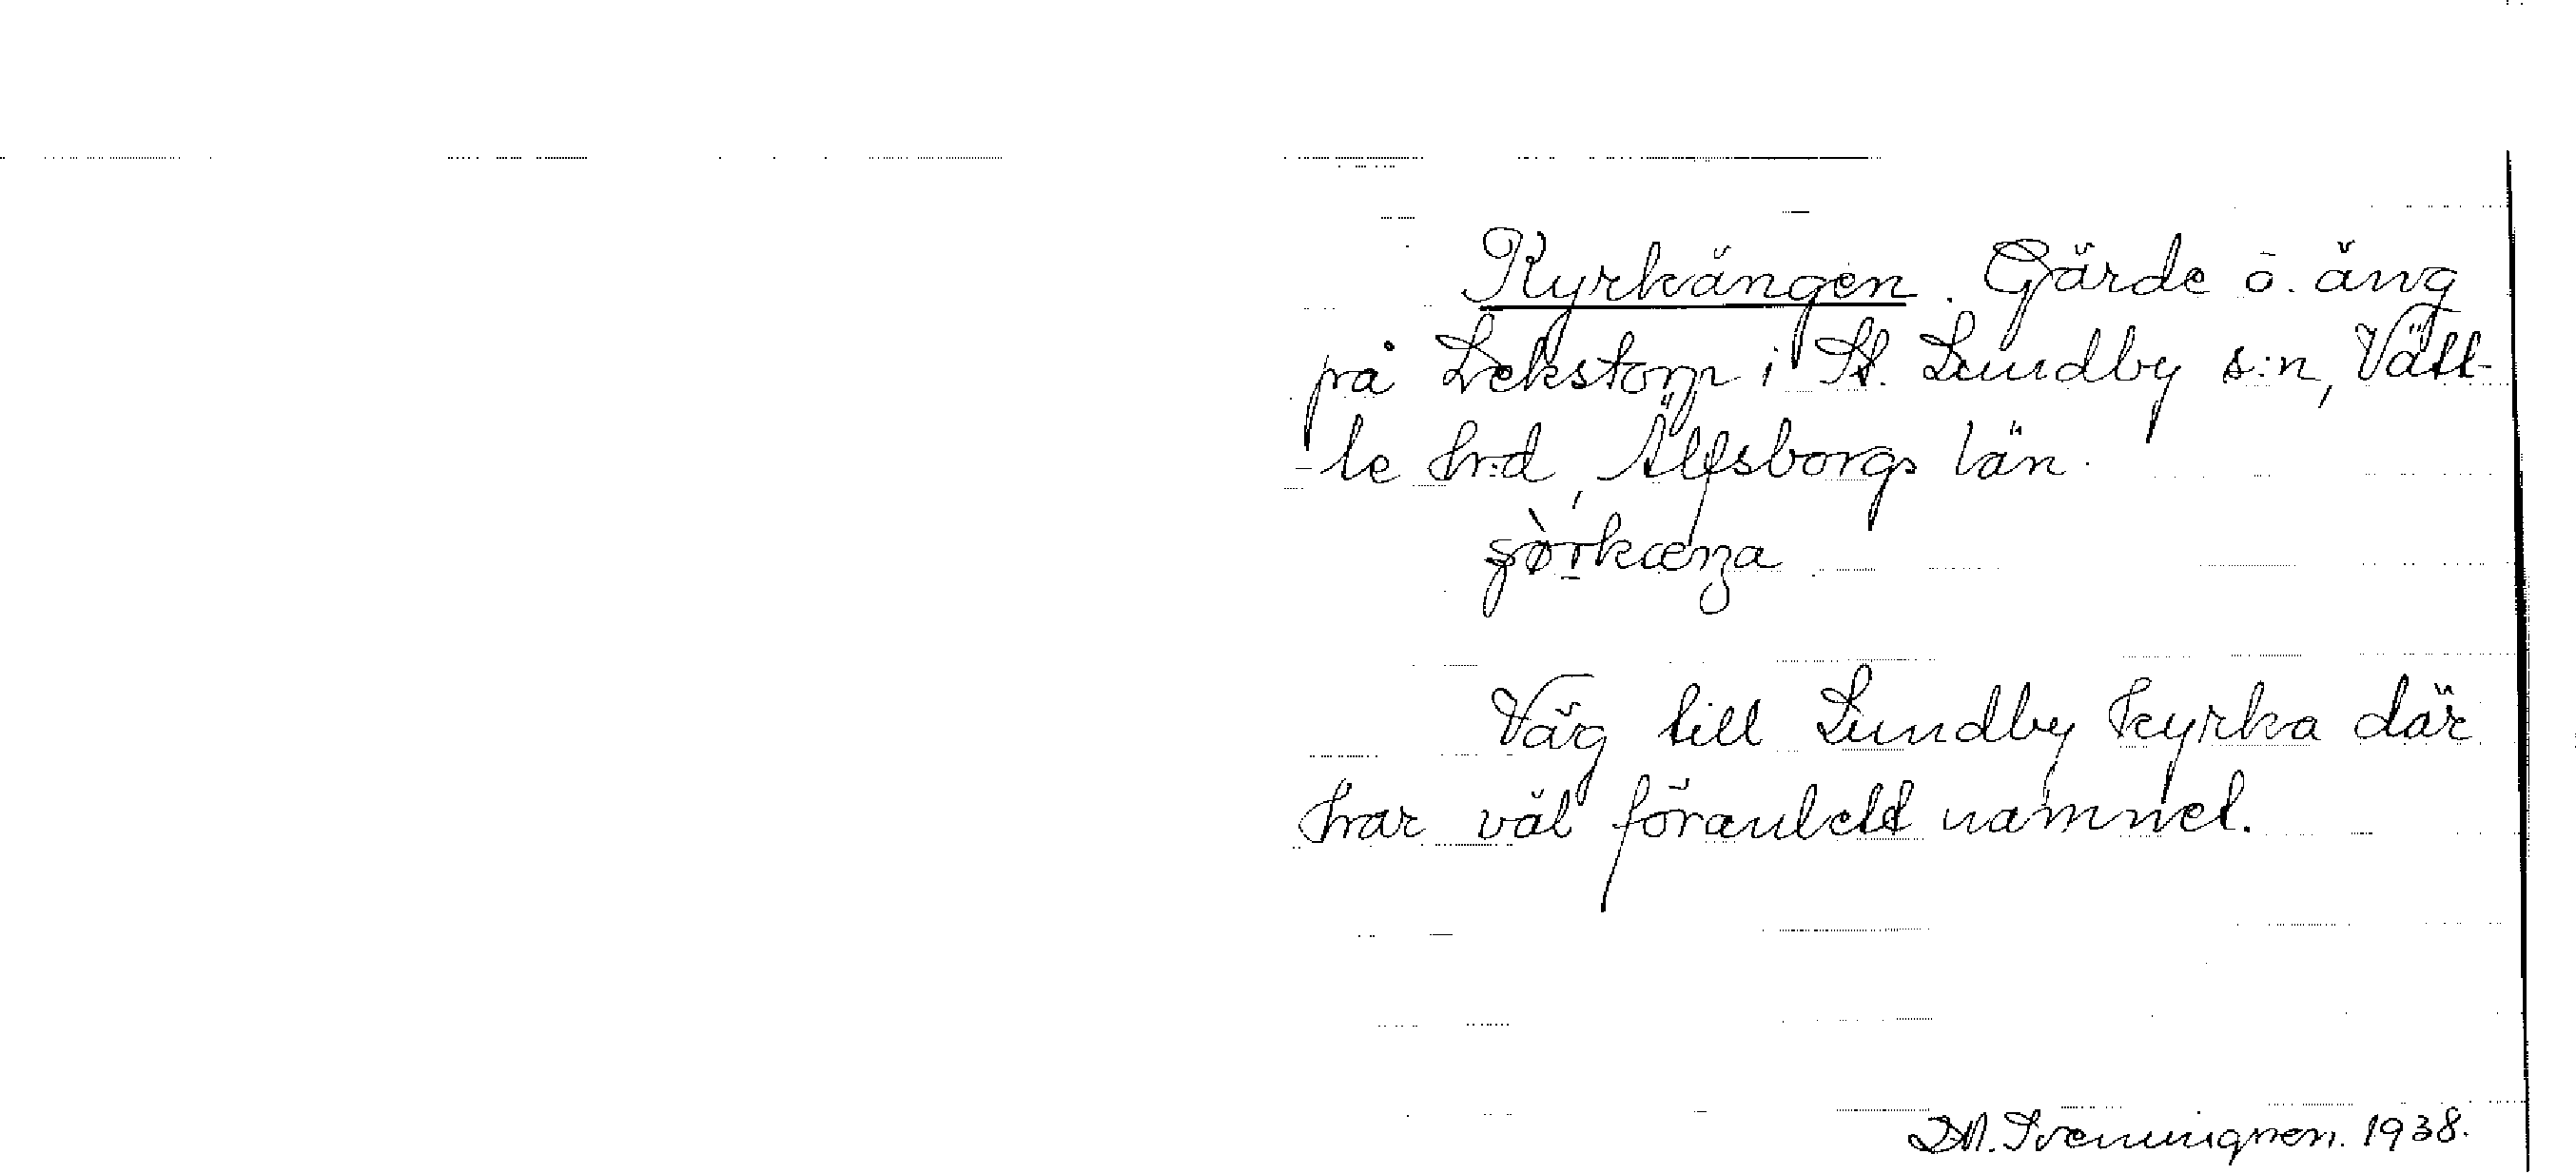 Kyrkängen. Gärde o. äng
på Lekstorp i St. Lundby s:n, Vätt-
le hr:d, Älfsborgs län.
Väg till Lundby kyrka där
har väl föranlett namnet.
1938.